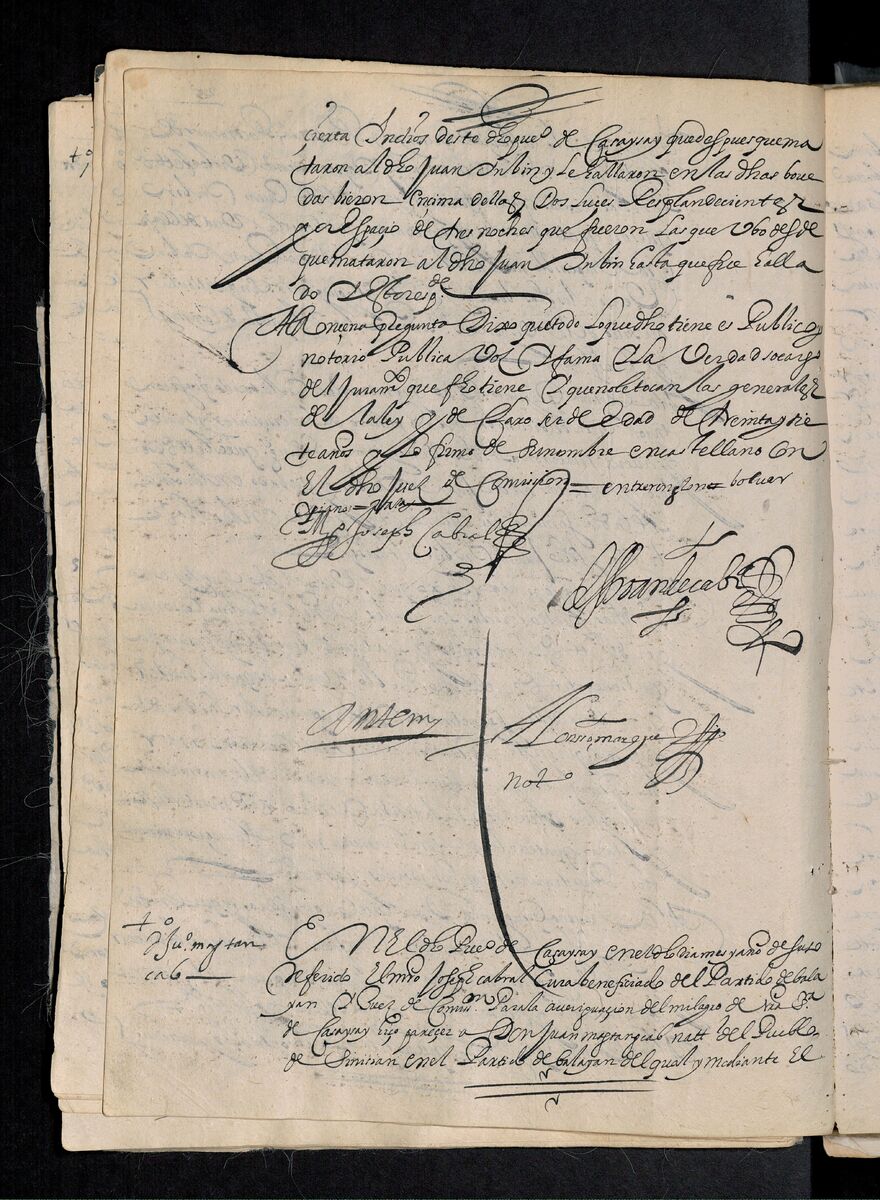 çierta Indios deste dho pueo de Casaysay que despues que ma
taron al dho Juan Inbin y le hallaron en las dhas bove
das bieron Encima dellas Dos Luces Resplandecientes
por Espacio de tres noches que fueron Las que Vbo desde
que mataron al dho Juan Inbin hasta que fue halla
do Y Esto respde
A la novena pregunta Dixo que todo lo que dho tiene es Publico y
notorio Publica voz Y fama Y la Verdad so cargo
del Juramto que fho tiene Y que no le tocan las generales
de la ley y declaro ser de Edad de treinta y sie
te años y lo firmo de su nombre en castellano con
El dho Juez de Comission = entre renglon = bolver
Mo Joseph Cabral
Antemy
Not o
+o
D Juo maptan
cab
En El dho Pueo de Casaysay en el dho dia mes y año de suso
Referido El mro Joseph cabral Cura beneficiado del Partido de bala
yan Y Juez de Comissn Para la averiguacion del milagro de Nra Sa
de Casaysay hiço pareçer a Don Juan maptangcab natl del Pueblo
de Sinisian en el Partido de balayan del qual y mediante El